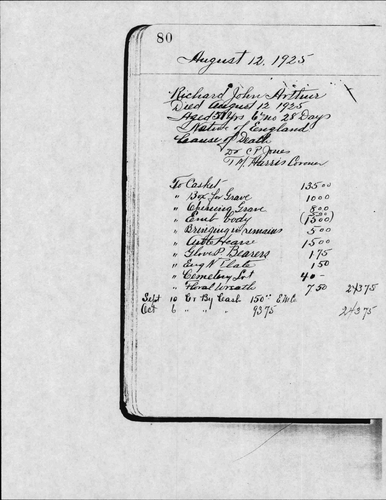 80
August 12, 1925
Richard John Arthur
Died August 12 1925
Aged 57 yrs 6 mo 28 Days
Native of England
Cause of Death
Dr C. P. Jones
T. M. Harris Coroner
To Casket 135 00
" Box for Grave 10 00
" Opening Grave 8 00
" Emb body (15 00)
" Bringing in remains 5 00
" Auto Hearse 15 00
" Gloves Bearers 1 75
" Eng N Plate 1 50
" Cemetery Lot 40 -
" Floral Wreath 7 50 243 75
Sept 10 Cr By Cash 150 00 E.M.C.
Oct 6 " " " 93 75 243 75